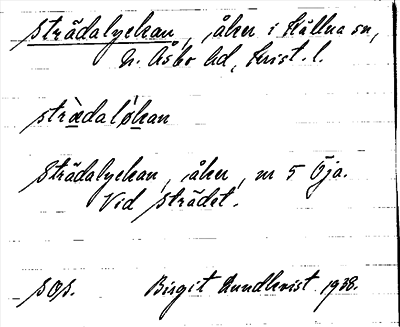 Strädalyckan, åker i Källna sn,
N. Åsbo hd, Krist. l.
strædalỏkan
Strädalyckan, åker, nr 5 Öja.
Vid strädet.
sOs. Birgit Lundkvist 1938.